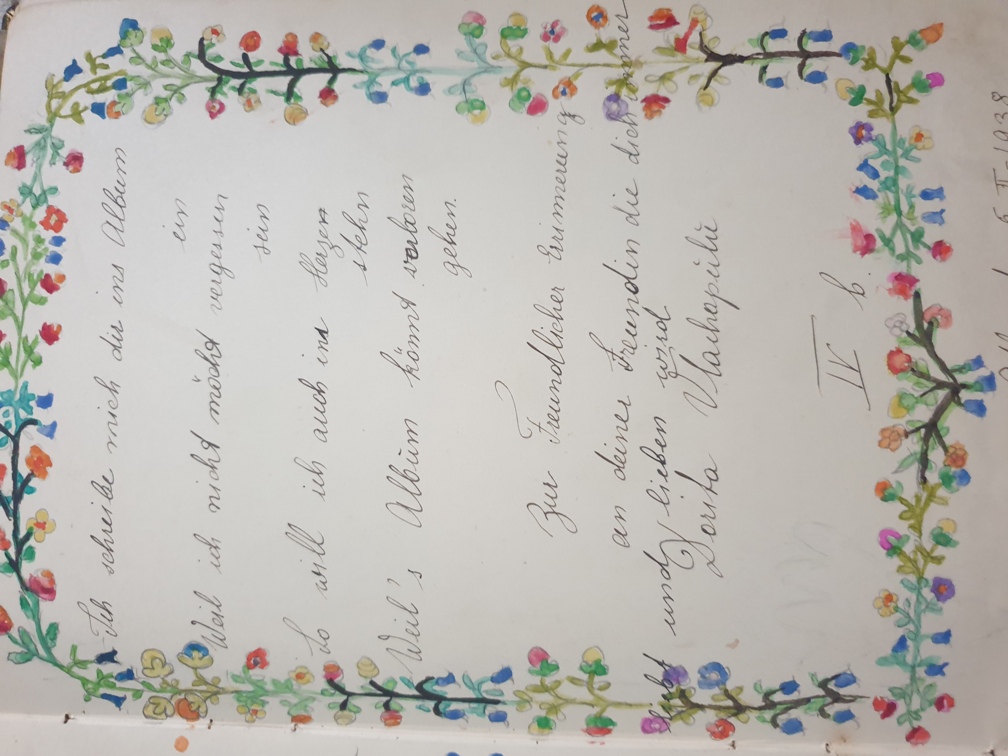 Ich schreibe mich dir ins Album
ein
Weil ich nicht möcht vergessen
sein
So will ich auch ins Herzen
stehn
Weil's Album könnt verloren
gehen.
Zur Freundlicher Erinnerung
an deiner Freundin die dich immer
liebt und lieben wird
Dorita Vlahopülü
IV b.
II-1938